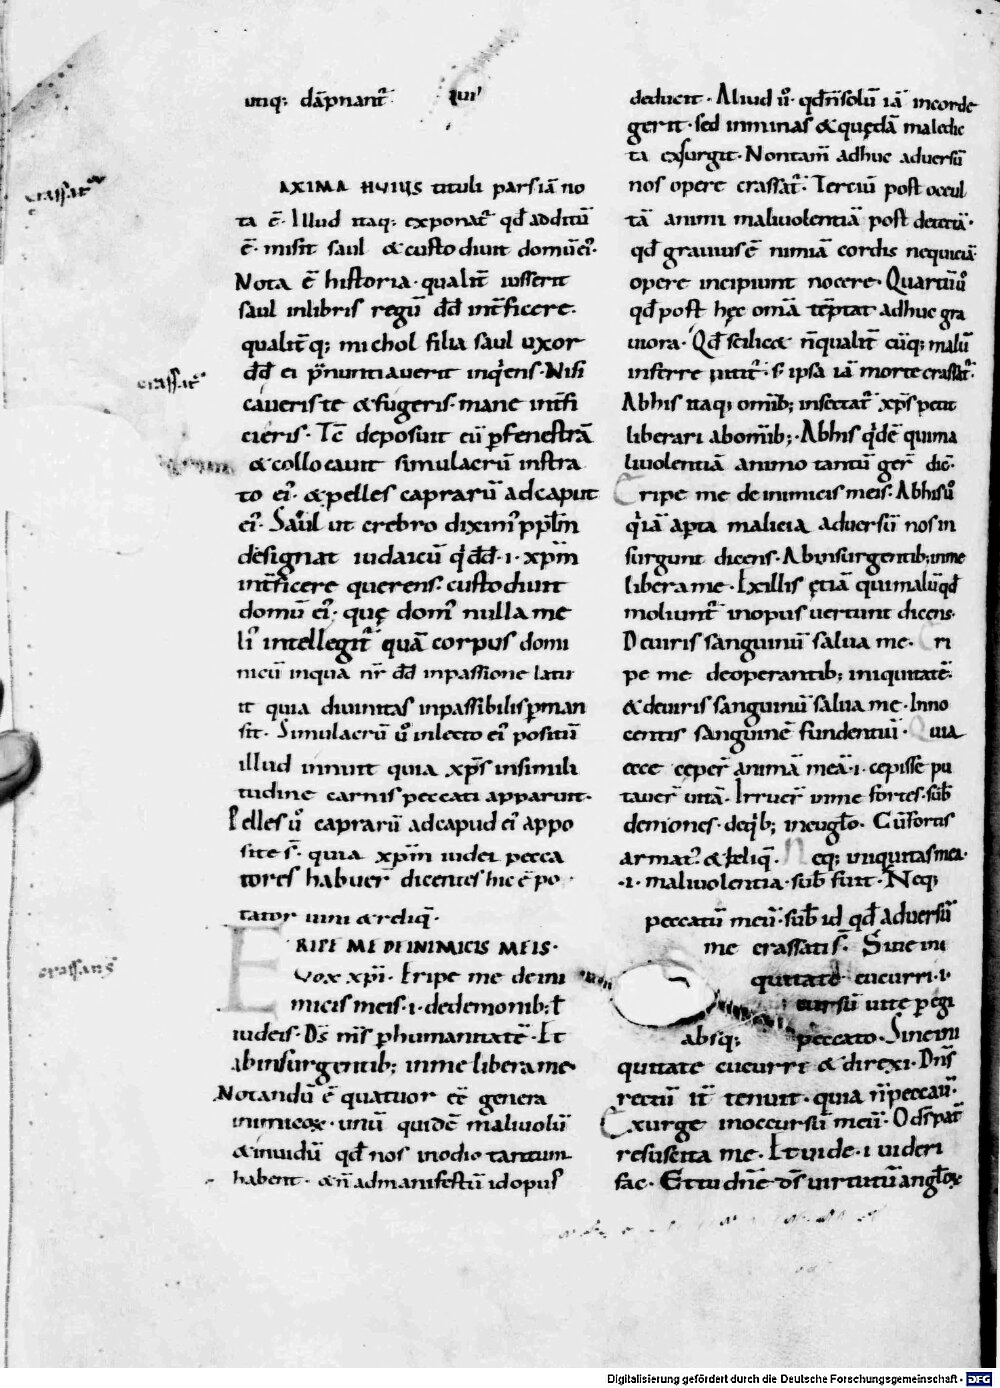 utiq; dāpnant᷑. LVIII
AXIMA HVIUS tituli pars iā no
ta ē. Illud itaq; exponat᷑ qd̄ additū
ē. misit saul & custodiuit domū ei᷒.
Nota ē historia. qualit̄ iusserit
saul in libris regū dd̄ int̄ficere.
qualit̄q; michol filia saul uxor
dd̄ ei p̄nuntiauerit inq̇ens. Nisi
caueris te & fugeris. mane int̄fi
cieris. Tc̄ deposuit eū p̱ fenestrā
& collocauit simulacrū in stra
to ei᷒. & pelles caprarū ad caput
ei᷒. Saul ut crebro dixim᷒ pp̄lm
designat iudaicū q̇ dd̄ .i. xp̄m
int̄ficere querens. custodiuit
domū ei᷒. quę dom᷒ nulla me
li᷒ intellegit᷑ quā corpus domi
nicū in qua nr̄ dd̄ in passione latu
it quia diuinitas inpassibilis p̱man
sit. Simulacrū u᷒ in lecto ei᷒ positū
illud innuit quia xp̄s in simili
tudine carnis peccati apparuit.
Pelles u᷒ caprarū ad capud ei᷒ appo
site s̄. quia xp̄m iudei pecca
tores habuer̄ dicentes hic ē po
tator uini & reliq̄.
ERIPE ME DE INIMICIS MEIS.
Vox xp̄i. Eripe me de ini
micis meis .i. de demonib; ł
iudeis. Ds̄ m̄s p̱ humanitatē. Et
ab insurgentib; in me libera me.
Notandū ē quatuor eē genera
inimicoꝝ. unū quidē maliuolū
& inuidū qd̄ nos in odio tantum
habent. & n̄ ad manifestū id opus
deducit. Aliud u᷒. qd̄ n̄ solū iā in corde
gerit. sed in minas & quędā maledic
ta exsurgit. Non tam̄ adhuc aduersū
nos opere crassat᷑. Terciū post occul
tā animi maliuolentiā post
qd̄ grauius ē nimiā cordis nequiciā
opere incipiunt nocere. Quartū u᷒
qd̄ post hęc om̄ia tēptat adhuc gra
uiora. Qd̄ scilic& n̄ qualit̄ cūq; malū
inferre utit᷑. s; ipsa iā morte crassat᷑.
Ab his itaq; om̄ib; insectat᷑ xp̄s petit
liberari ab om̄ib;. Ab his q̇dē qui ma
liuolentiā animo tantū ger̄ dic̄.
Eripe me de inimicis meis. Ab his u᷒
q̇ iā ap̱ta malicia aduersū nos in
surgunt dicens. Ab insurgentib; in me
libera me. Ex illis ętiā qui malū qd̄
moliunt᷑ in opus uertunt dicens.
De uiris sanguinū salua me. Eri
pe me de operantib; iniquitatē.
& de uiris sanguinū salua me. Inno
centis sanguinē fundentiū. Quia
ecce ceper̄ animā meā .i. cepisse pu
tauer̄ uitā. Irruer̄ in me fortes. sub̄
demones. de q̇b; in eugl̄o. Cū fortis
armat᷒. & reliq̄. Neq; iniquitas mea.
.i. maliuolentia. sub̄ fuit. Neq;
peccatū meū. sub̄ id qd̄ aduersū
me crassati s̄. Sine ini
quitate cucurri .i.
cursū uite p̱egi
absq; peccato. Sine ini
quitate cucurri & direxi. Dn̄s
rectū it̄ tenuit. quia n̄ peccau̅.
Exurge in occursū meū. O ds̄ pat̄
resuscita me. Et uide .i. uideri
fac. Et tu dn̄e ds̄ uirtutū angl̄oꝝ
crassat᷑
crassat᷑
crassant̄
Digitalisierung gefördert durch die Deutsche Forschungsgemeinschaft - DFG